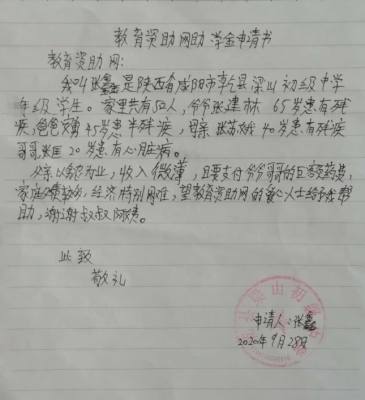 教育资助网助学金申请书
教育资助网:
我叫张鑫是陕西省咸阳市乾县梁山初级中学
年级学生。家里共有5口人,爷爷张建林 65岁患有残
疾,爸爸 45岁患半残疾,母亲 张 娥 40岁患有残疾
哥哥,张 20岁患有心脏病。
父亲以务农为业,收入微薄,且要支付爷爷哥的巨额药费,
家庭 ,经济特别困难,望教育资助网的爱心人士给予我帮
助,谢谢叔叔阿姨。
此致
敬礼
山初级
申请人:张鑫
2020年9月28日